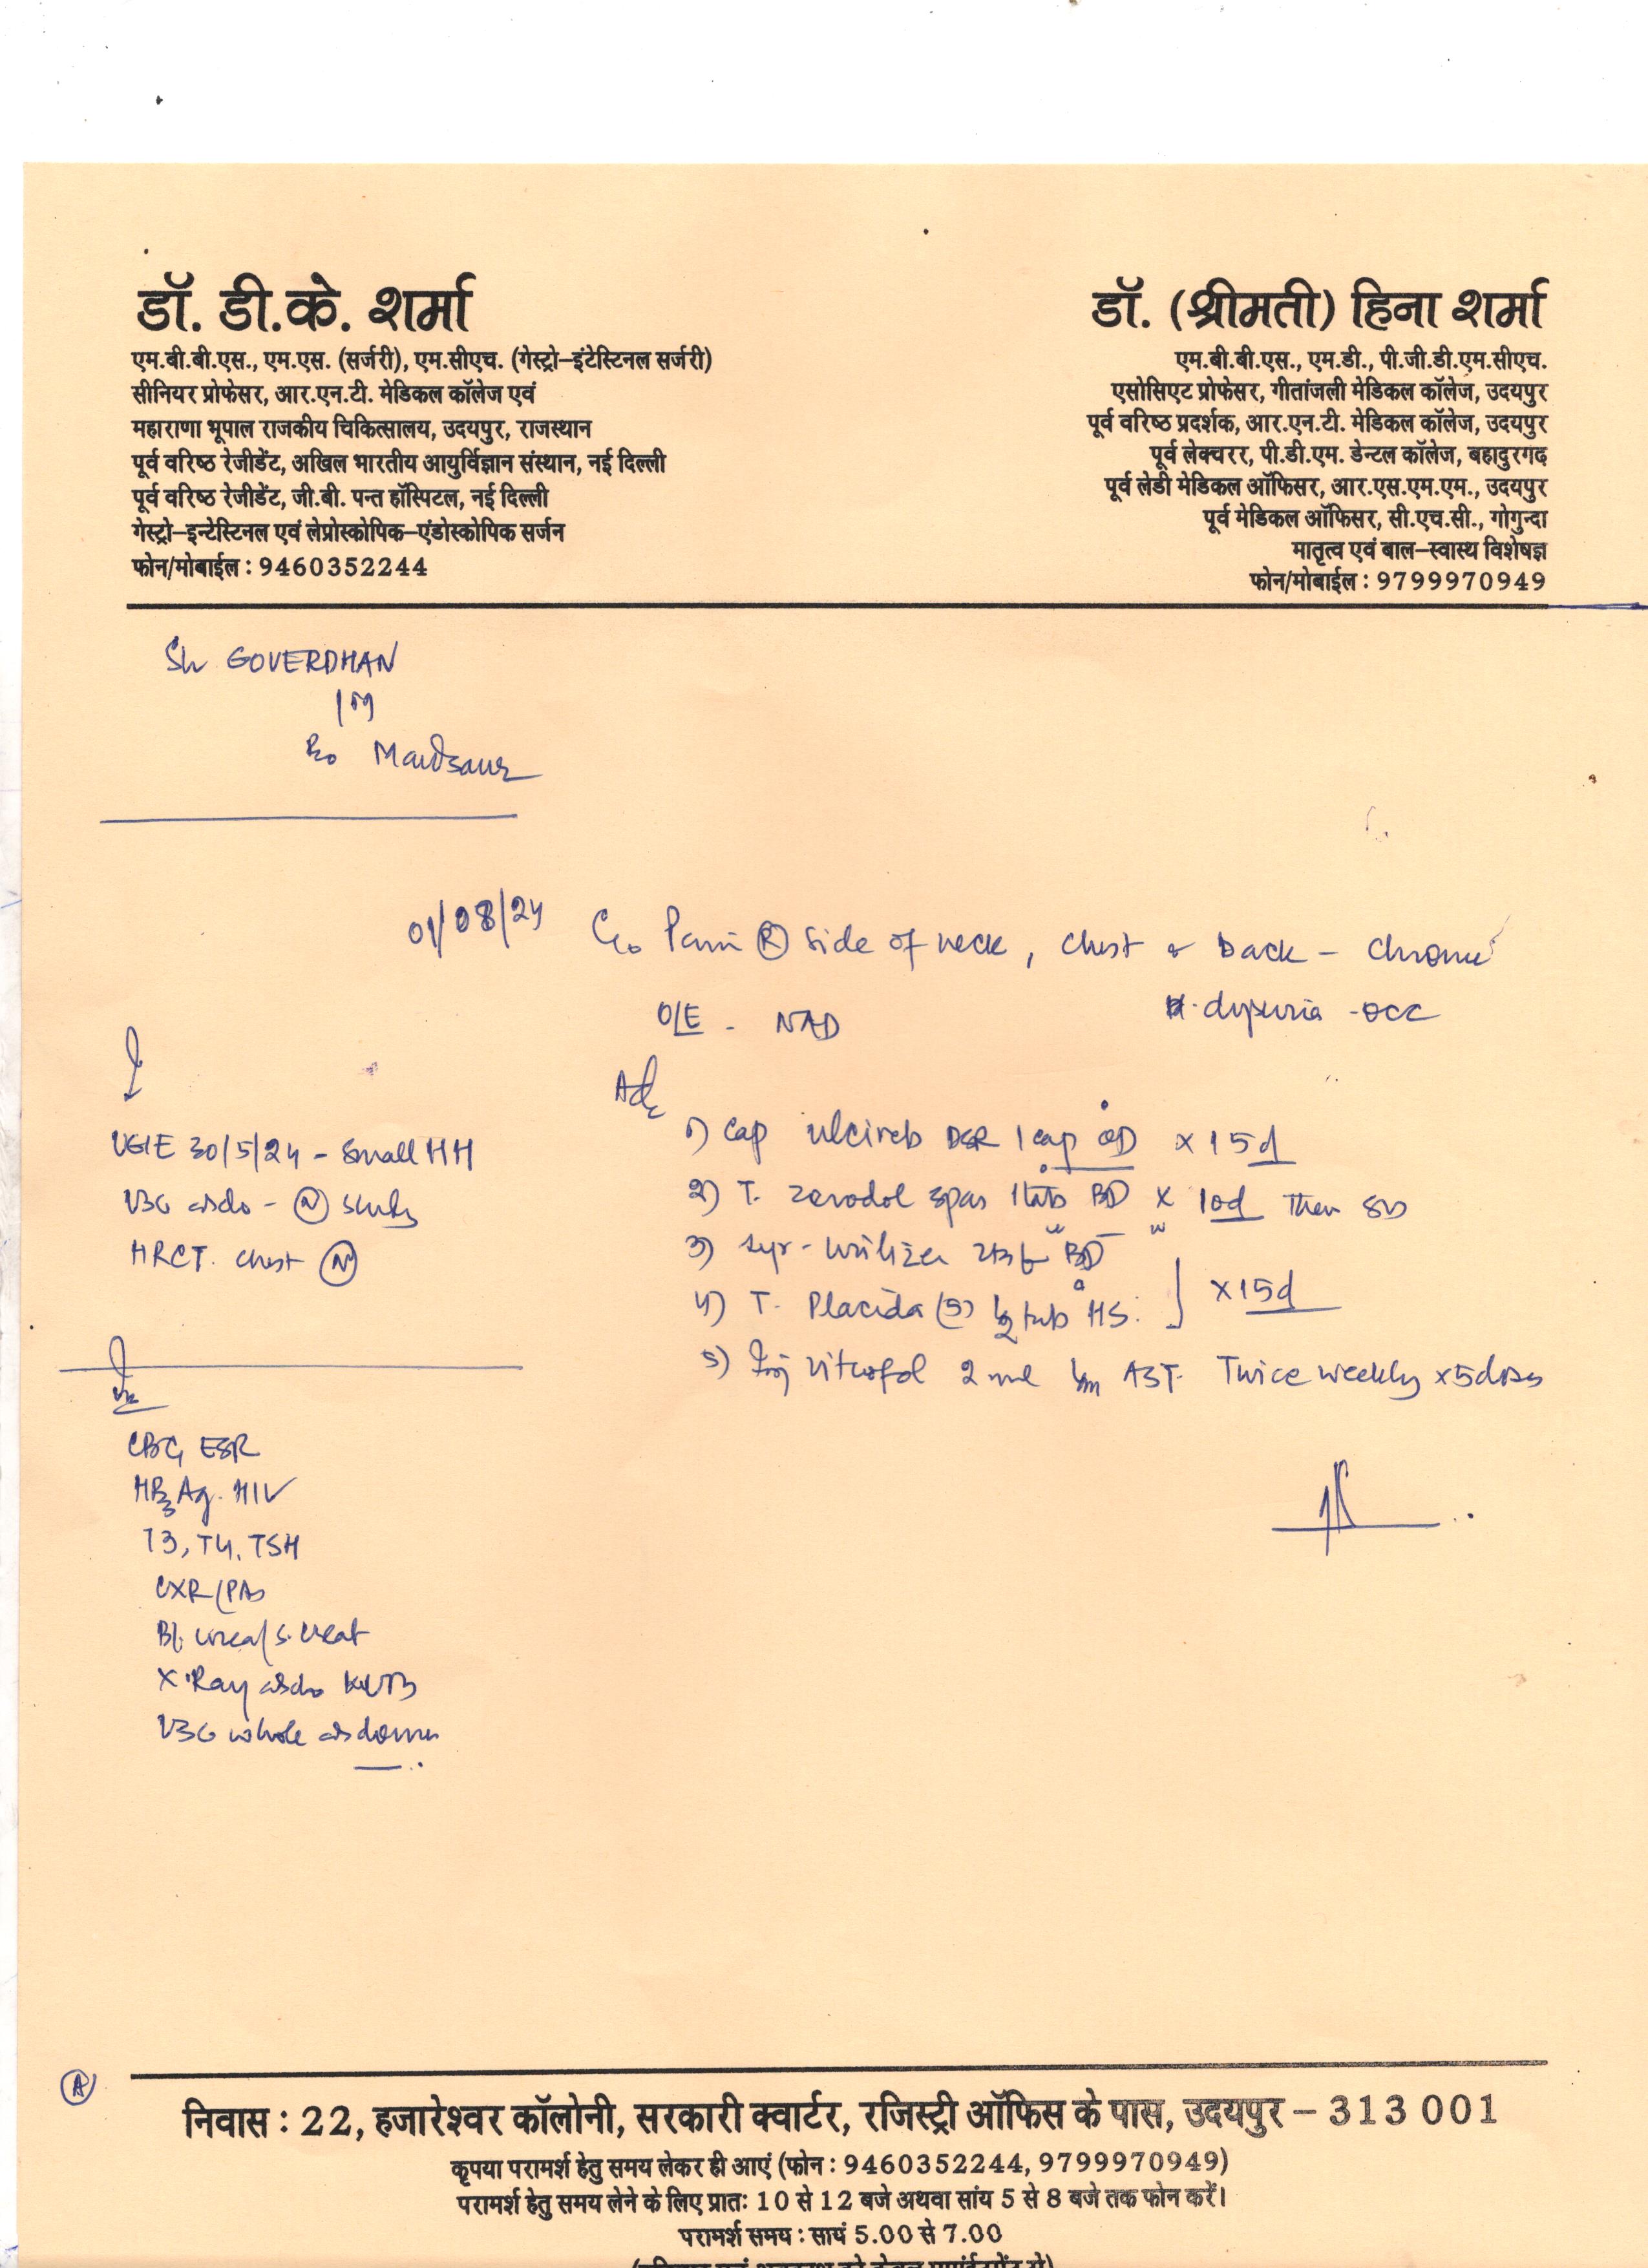 डॉ. डी.के. शर्मा
एम.बी.बी.एस., एम.एस. (सर्जरी), एम.सीएच. (गेस्ट्रो–इंटेस्टिनल सर्जरी)
सीनियर प्रोफेसर, आर.एन.टी. मेडिकल कॉलेज एवं
महाराणा भूपाल राजकीय चिकित्सालय, उदयपुर, राजस्थान
पूर्व वरिष्ठ रेजीडेंट, अखिल भारतीय आयुर्विज्ञान संस्थान, नई दिल्ली
पूर्व वरिष्ठ रेजीडेंट, जी.बी. पन्त हॉस्पिटल, नई दिल्ली
गेस्ट्रो–इन्टेस्टिनल एवं लेप्रोस्कोपिक–एंडोस्कोपिक सर्जन
फोन/मोबाईल : 9460352244
डॉ. (श्रीमती) हिना शर्मा
एम.बी.बी.एस., एम.डी., पी.जी.डी.एम.सीएच.
एसोसिएट प्रोफेसर, गीतांजली मेडिकल कॉलेज, उदयपुर
पूर्व वरिष्ठ प्रदर्शक, आर.एन.टी. मेडिकल कॉलेज, उदयपुर
पूर्व लेक्चरर, पी.डी.एम. डेन्टल कॉलेज, बहादुरगढ
पूर्व लेडी मेडिकल ऑफिसर, आर.एस.एम.एम., उदयपुर
पूर्व मेडिकल ऑफिसर, सी.एच.सी., गोगुन्दा
मातृत्व एवं बाल–स्वास्थ विशेषज्ञ
फोन/मोबाईल : 9799970949
Sh GOVERDHAN
/M
R/o Mandsaur
01/08/24 C/o Pain (R) side of neck, chest & back – chronic
dysuria - occ
O/E - NAD
UGIE 30/5/24 - Small HH
USG abdo - (N) study
HRCT. chest (N)
Adv
1) Cap ulcireb DSR 1 cap OD x 15d
2) T. zerodol spas 1 tab BD x 10d Then SOS
3) Syr - Urilizer 2tsf BD
4) T. Placida (5) ½ tab HS. ] x 15d
5) Inj Vitcofol 2 ml Im AST. Twice weekly x 5 doses
CBC, ESR
HBsAg. HIV
T3, T4, TSH
CXR (PA)
Bl. urea/s. creat
X-Ray abdo KUB
USG whole abdomen
(A)
निवास : 22, हजारेश्वर कॉलोनी, सरकारी क्वार्टर, रजिस्ट्री ऑफिस के पास, उदयपुर – 313 001
कृपया परामर्श हेतु समय लेकर ही आएं (फोन : 9460352244, 9799970949)
परामर्श हेतु समय लेने के लिए प्रातः 10 से 12 बजे अथवा सांय 5 से 8 बजे तक फोन करें।
परामर्श समय : सायं 5.00 से 7.00